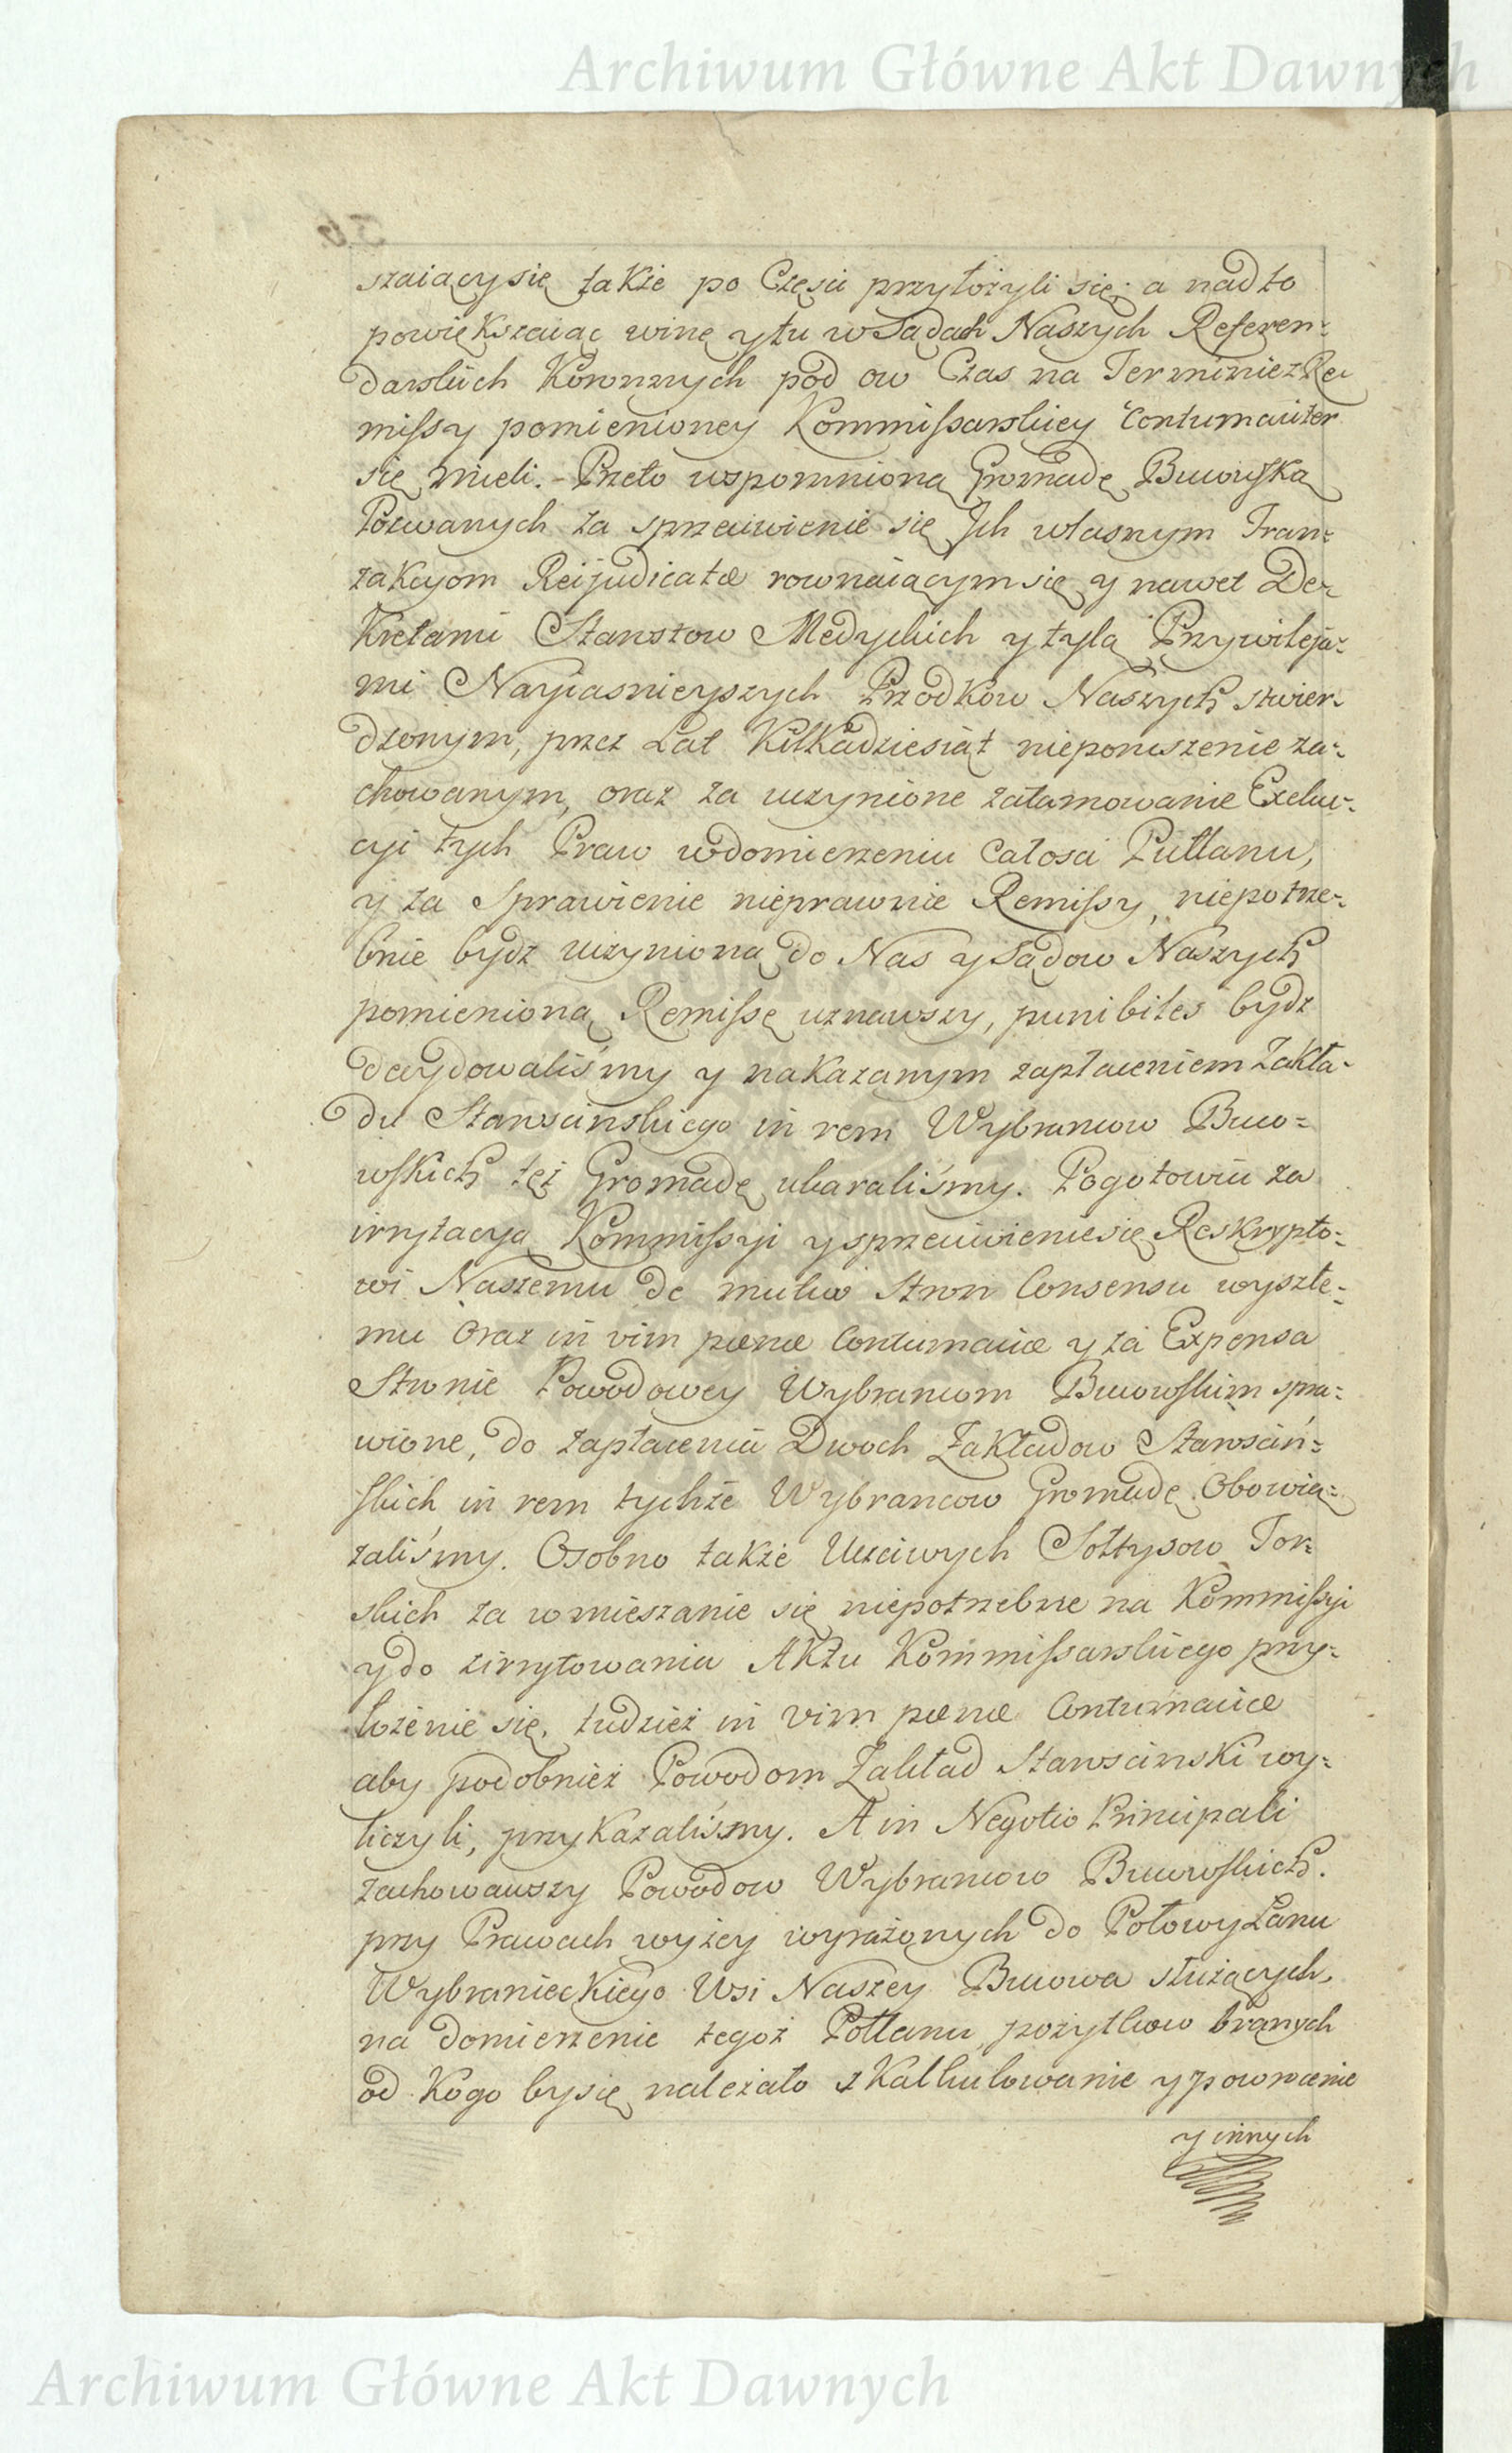 Archiwum Główne Akt Dawnych
szaiący się także po Części przyłożyli się; a nadto
powiększaiąc winę y tu w Sądach Naszych Referen=
darskich Koronnych pod ow Czas na Terminie z Re
missy pomienioney Kommissarskiey Contumaciter
się mieli. - Przeto wspomnioną Gromadę Bucowską
Pozwanych za sprzeciwienie się Ich własnym Tran=
zakcyom Reijudicatæ rownaiącym się y nawet De=
kretami Starostow Medyckich y tylą Przywileja=
mi Nayiasnieyszych Przodkow Naszych stwier=
dzonym, przez Lat Kilkadziesiąt nieporuszenie za=
chowanym, oraz za uczynione zatamowanie Exeku=
cyi tych Praw w domierzeniu Całosci Pułłanu,
y za Sprawienie nieprawnie Remissy, niepotrze=
bnie bydz uczynioną do Nas y Sądow Naszych
pomienioną Remissę uznawszy, punibiles bydz
decydowaliśmy y nakazanym zapłaceniem Zakła=
du Starościnskiego in rem Wybrancow Buco=
wskich też Gromadę ukaraliśmy. Pogotowiu za
irrytacyą Kommissyi y sprzeciwienie się Reskrypto=
wi Naszemu de mutuo Stron Consensu wyszłe=
mu oraz in vim pœnæ Contumaciæ y za Expensa
Stronie Powodowey Wybrancom Bucowskim spra=
wione, do zapłacenia Dwoch Zakładow Starościń=
skich in rem tychże Wybrancow Gromadę Obowią=
zaliśmy. Osobno także Uczciwych Sołtysow Tor=
skich za wmieszanie się niepotrzebne na Kommissyi
y do zirrytowania Aktu Kommissarskiego przy=
łożenie się, tudzież in vim pœnæ Contumaciæ
aby podobnież Powodom Zakład Starościnski wy=
liczyli, przykazaliśmy. A in Negotio Principali
zachowawszy Powodow Wybrancow Bucowskich.
przy Prawach wyżey wyrażonych do Połowy Łanu
Wybranieckiego Wsi Naszey Bucowa służących,
na domierzenie tegoż Połłanu, pożytkow branych
od Kogo by się należało skalkulowanie y powrocenie
y innych
Archiwum Główne Akt Dawnych